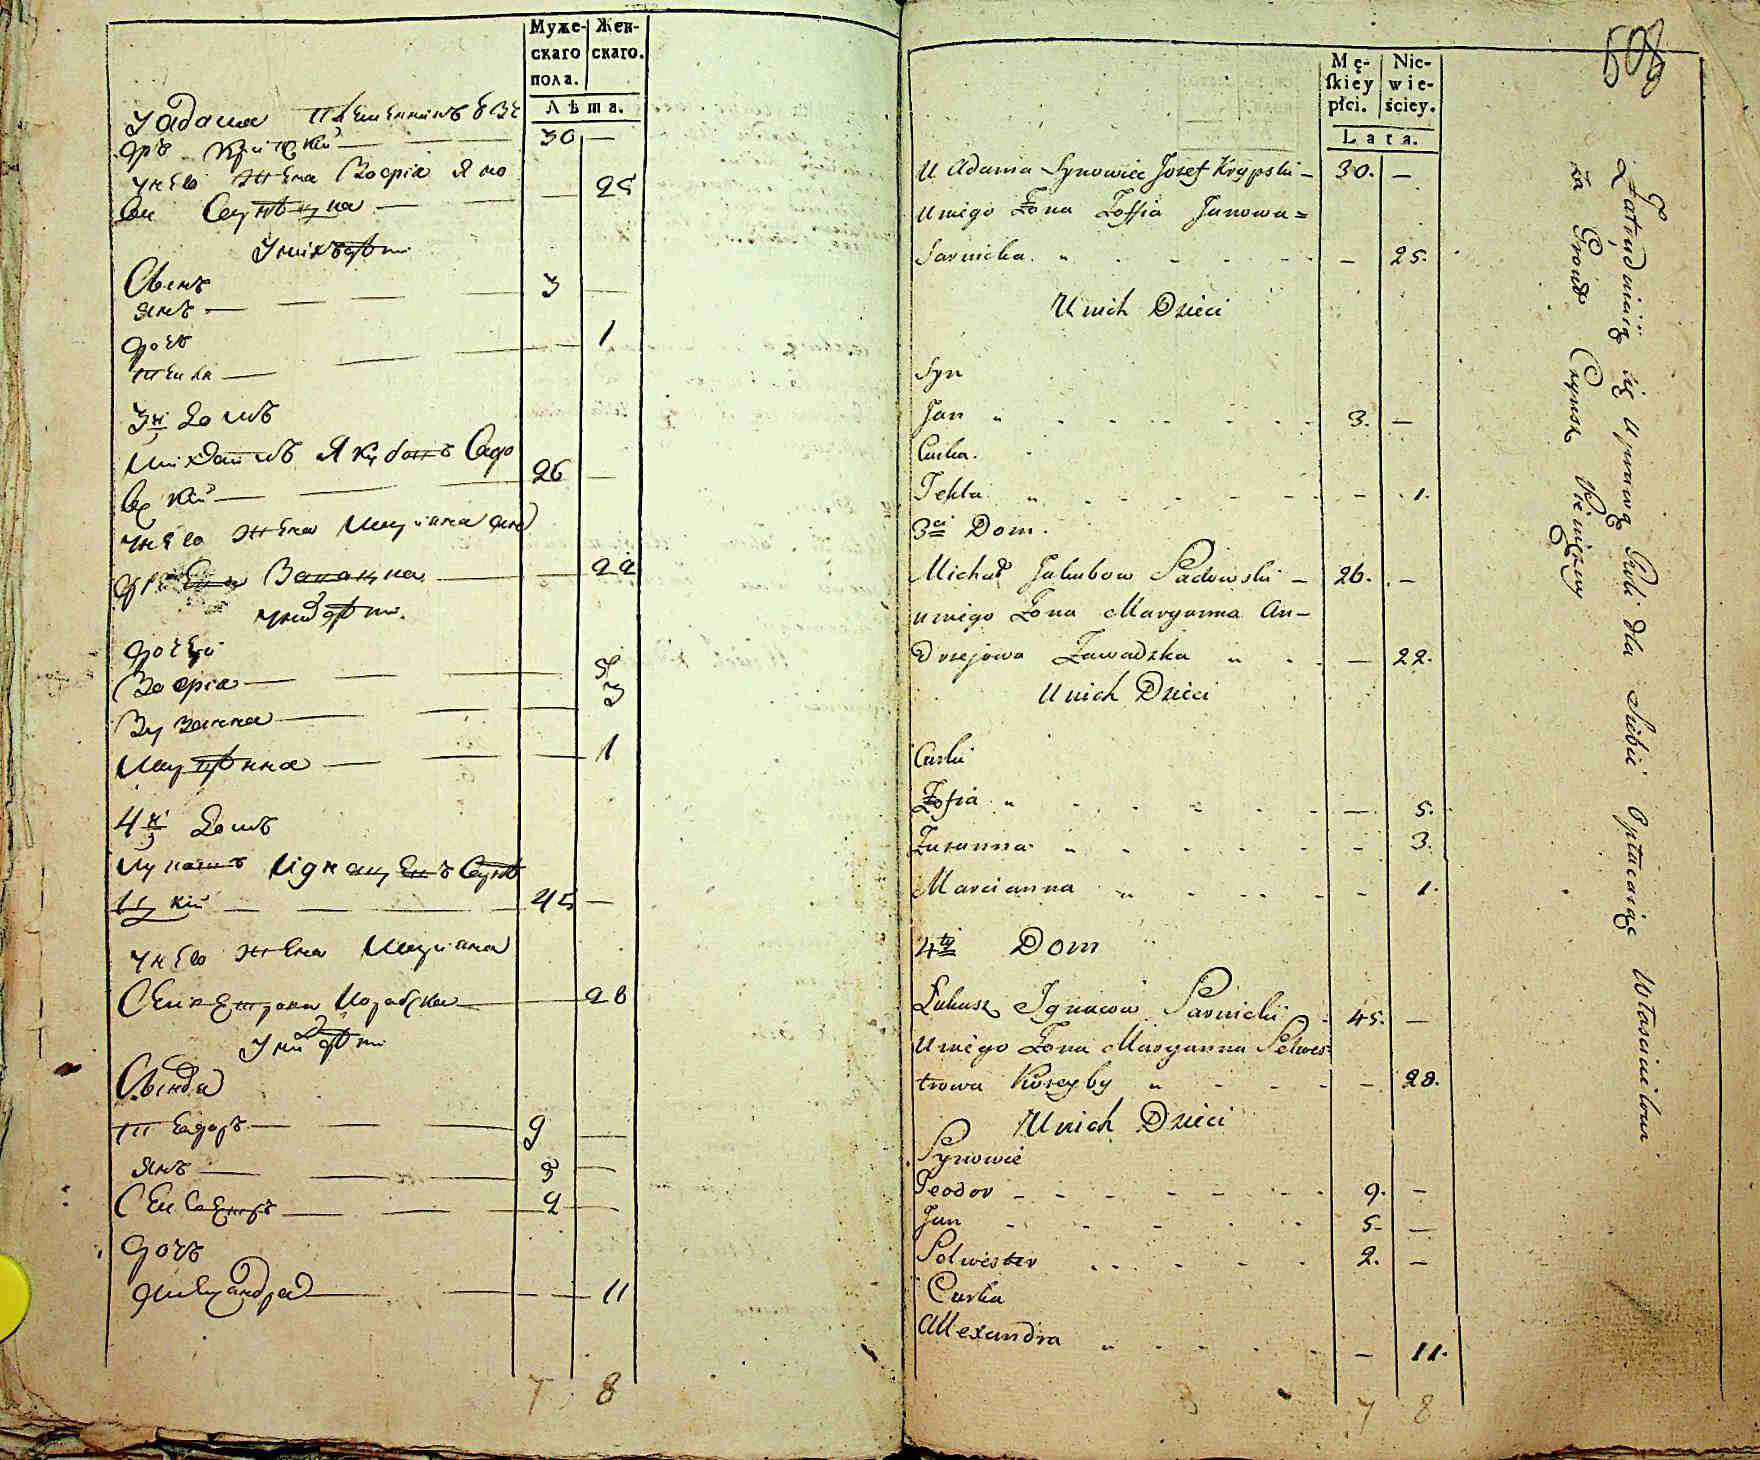 Муже-
скаго
пола.
Жен-
скаго.
Лѣта.
У адама племенникъ езе
фъ крипскій 30 —
у него жена Зофіа Яно
ва Сарнѣцка — 25
У них дѣти
Сынъ
Янъ 3 —
дочь
Текла — 1
3й Домъ
Михаилъ Якубовъ Садо
вскій 26 —
у него жена Марiана ан
дреева Завацка — 22
У них дѣти.
дочери
Зофіа 5
Зузанна 3
Марцѣнна — 1
4й Домъ
Лукашъ Игнацевъ Сарнѣ
цкій 45 —
у него жена Марiана
Силвестрова — 28
У них дѣти
Сынови
Теодоръ 9 —
Янъ 5 —
Силвестръ 2 —
дочь
алехандра — 11
7 8
508
Mę-
skiey
płci.
Nie-
wie-
ściey.
Lata.
U Adama Synowiec Jozef Krypski — 30. —
u niego Żona Zoffia Janowa=
Sarnicka — 25.
U nich Dzieci
Syn
Jan 3. —
Curka.
Tekla — 1.
3ci Dom.
Michał Jakubow Sadowski — 26. —
u niego Żona Maryanna An—
drzejowa Zawadzka — 22.
U nich Dzieci
Curki
Zofia — 5.
Zuzanna — 3.
Marcianna — 1.
4ty Dom
Łukasz Ignacow Sarnicki 45. —
U niego Żona Maryanna Selwes
trowa — 28.
U nich Dzieci
Synowie
Teodor 9. —
Jan 5. —
Selwester 2. —
Curka
Allexandra — 11.
7 8
Zatrudniaią się uprawą Roli dla Siebie Opłacaiąc Właścicielowi
za Grunt Czynsz Pieniężny